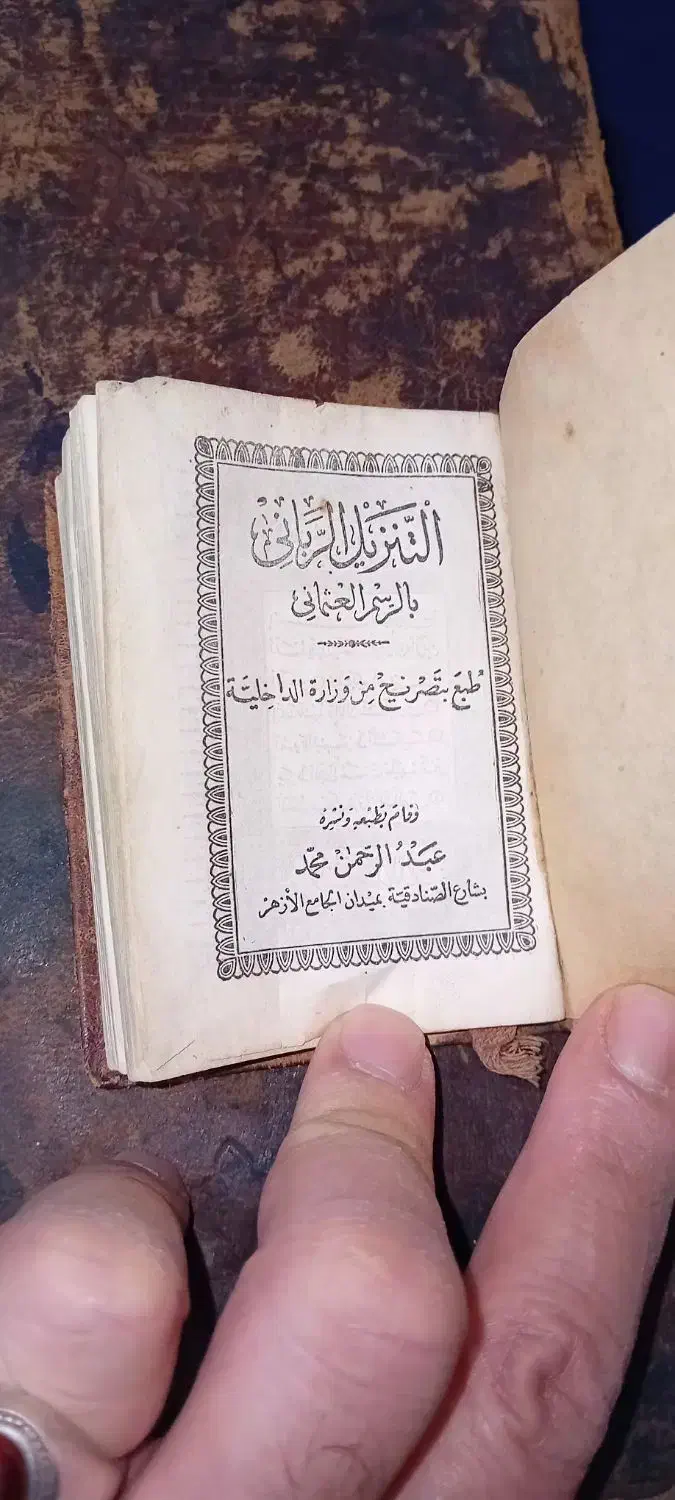 التَّنزيل الرَّبَّانِيْ
بالرسم العثمانى
طُبعَ بتَصْريحٍ مِنْ وَزَارة الداخِليَّة
وَقامَ بطَبْعِهِ وَنَشْرِه
عَبْدُ الرَّحمٰنْ محمَّد
بشارع الصَّنادقيَّة بميْدان الجامع الأزهَرْ